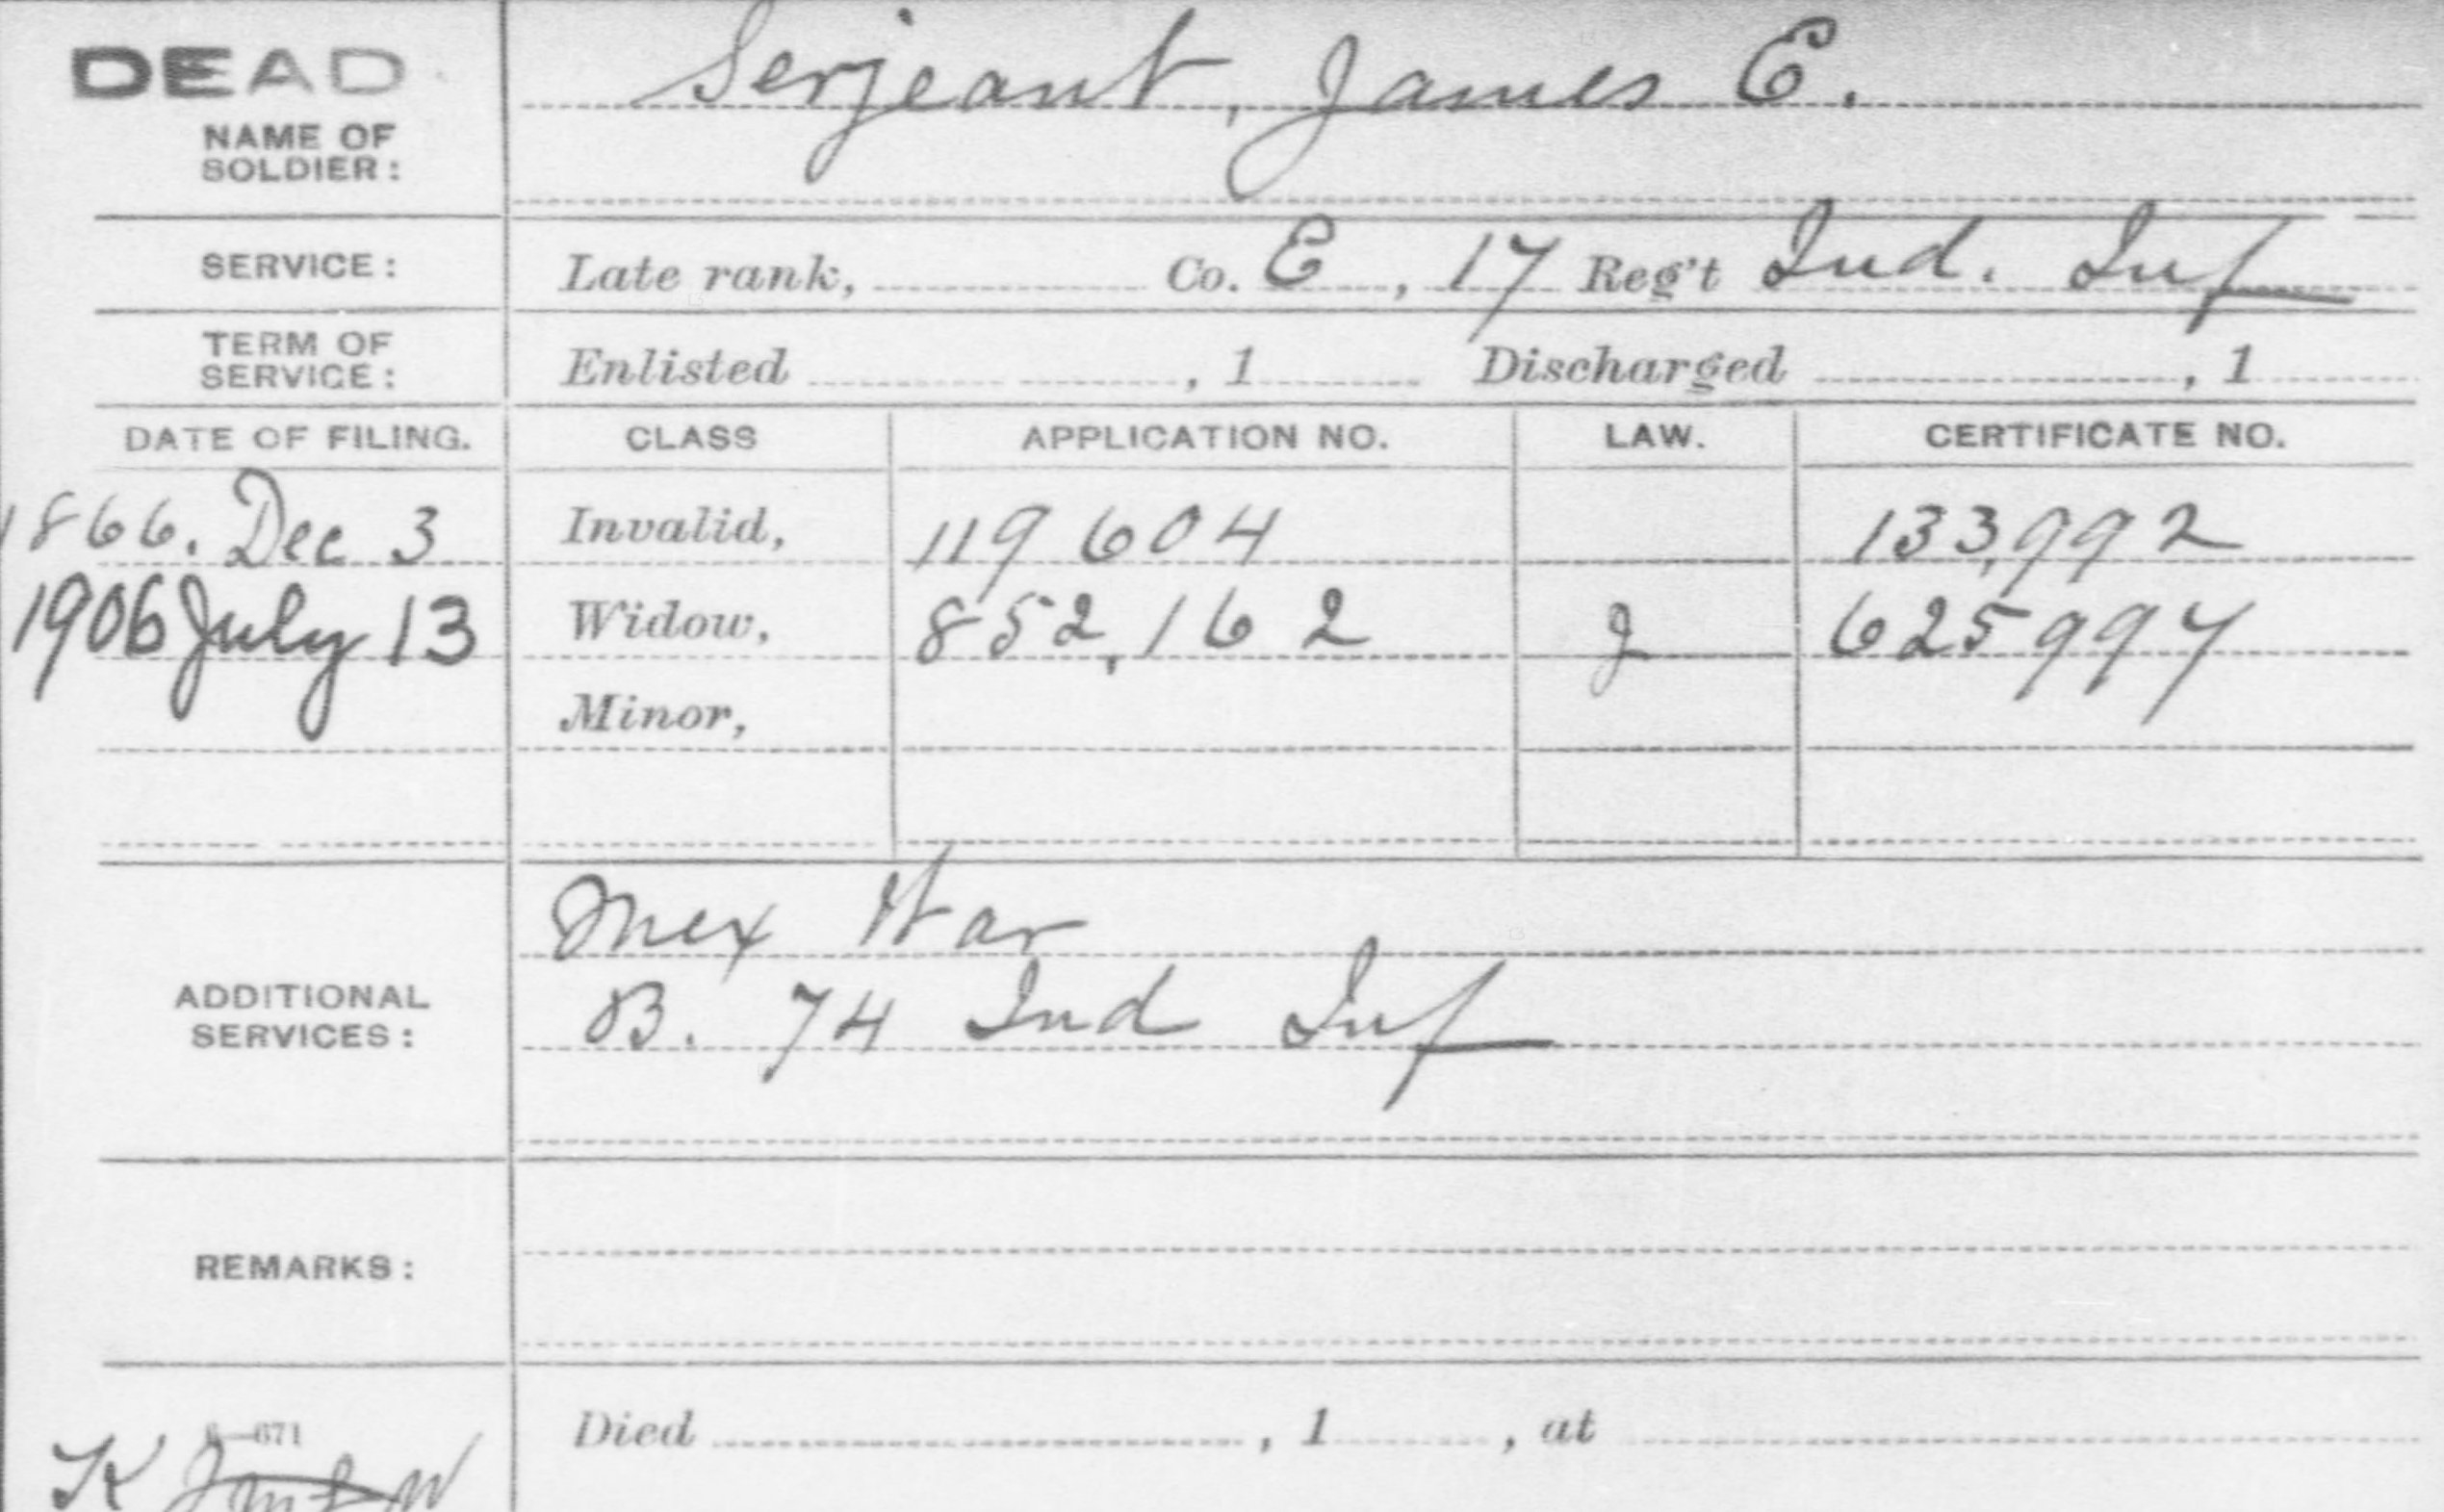 DEAD
NAME OF SOLDIER: Serjeant, James E.
SERVICE: Late rank, Co. E, 17 Reg't Ind. Inf
TERM OF SERVICE: Enlisted , 1 Discharged , 1
DATE OF FILING. CLASS APPLICATION NO. LAW. CERTIFICATE NO.
1866. Dec 3 Invalid, 119 604 133,992
1906 July 13 Widow, 852,162 J 625997
Minor,
ADDITIONAL SERVICES: Mex War
B. 74 Ind Inf
REMARKS:
Died , 1 , at
K